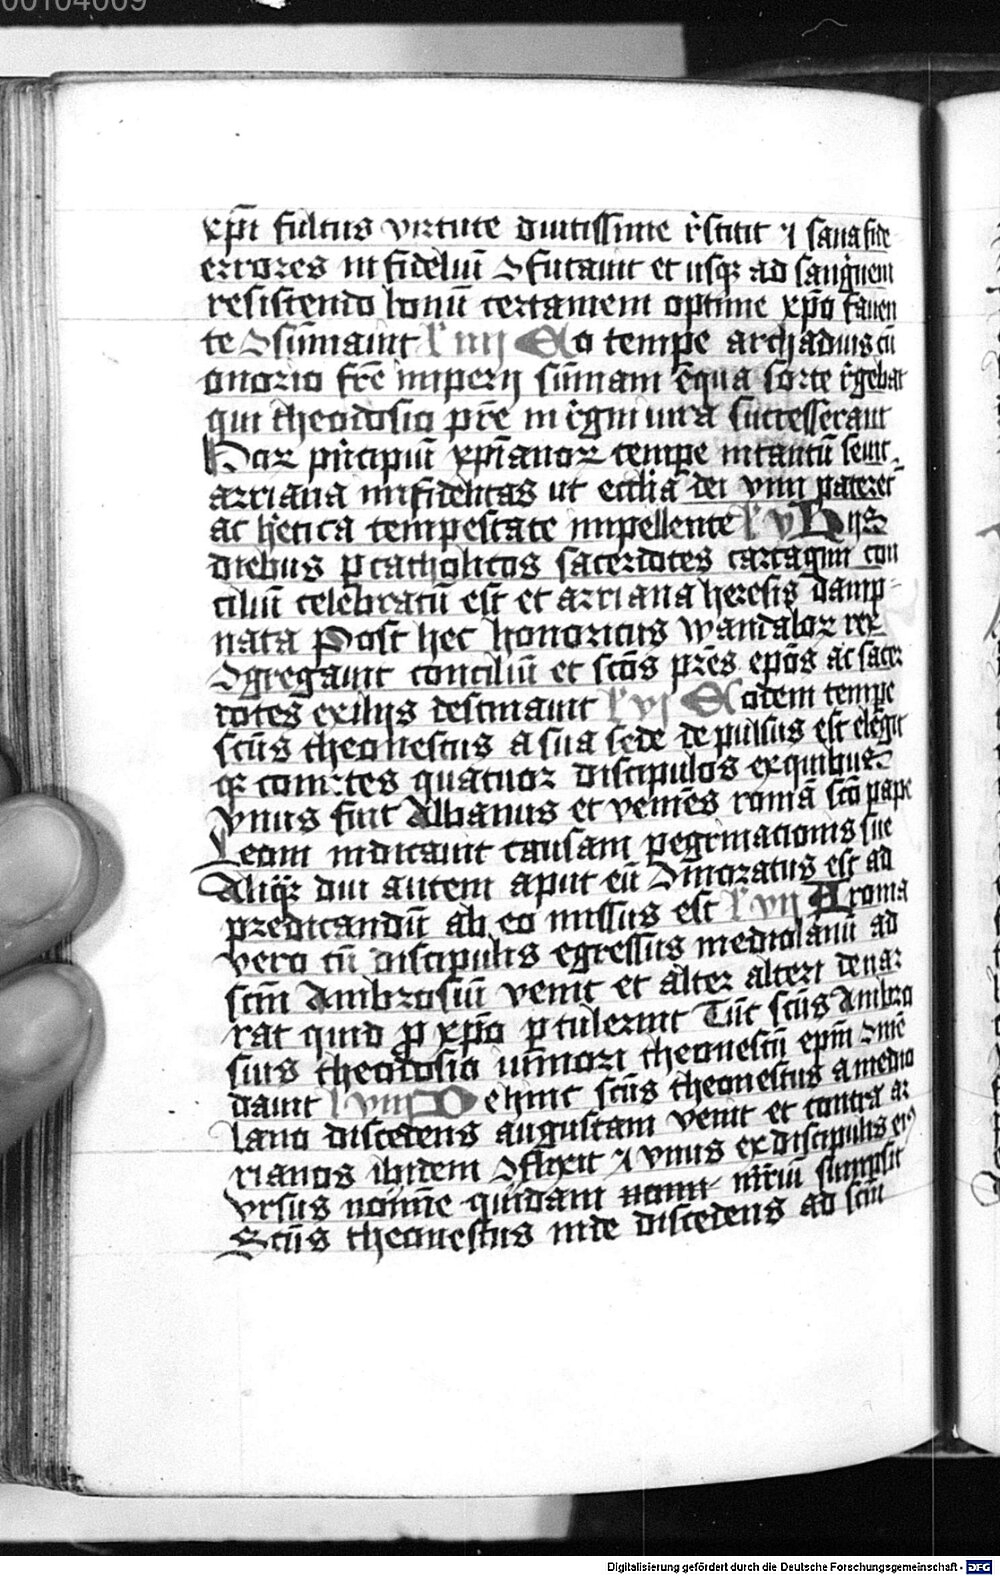 00104009
xp̄i fultus virtute diutissime rͥstitit ⁊ sana fide
errores infideliū ꝯfutauit et usqꝫ ad sangͥnem
resistendo bonū certamen optime xp̄o fauen
te ꝯsūmauit lͥ iiij Eo tempe archadius cū
onorio frē imperij sūmam eq̄a sorte rͥgebat
qui theodosio prē in rͥgni iura successerant
Hoꝝ pͥncipiū xp̄ianoꝝ tempe intantū seuit
arriana infidelitas ut eccliā dei vim pateret̄
ac hͥetica tempestate impellente lͥ v Hijs
diebus ꝑ catholicos sacerdotes cartagini con
ciliū celebratū est et arriana heresis damp-
nata Post hec honoricus wandaloꝝ rex
ꝯgregauit conciliū et scōs prēs epōs ac sacer
dotes exilijs destinauit lͥ vj Eodem tempe
scūs theonestus a sua sede depulsus est elegit
qꝫ comites quatuor discipulos ex quibus
vnus fuit Albanus et veniēs romā scō pape
Leoni indicauit causam pegͥnacionis sue
Aliqͣꝫ diu autem aput eū ꝯmoratus est ad
predicandū ab eo missus est lͥ vij A roma
vero cū discipulis egressus mediolanū ad
scm̄ Ambrosiū venit et alter alteri denar
rat quid ꝓ xp̄o ꝑtulerint Tūc scūs Ambro
sius theodosio iūniori theonestū epm̄ ꝯmē
dauit lͥ viij Dehinc scūs theonestus a medio
lano discedens augustam venit et contra ar
rianos ibidem ꝯflixit ⁊ vnus ex discipulis eiꝰ
vrsus nomine quidam m̄riū sumpsit
Scūs theonestus inde discedens ad scm̄
Digitalisierung gefördert durch die Deutsche Forschungsgemeinschaft - DFG